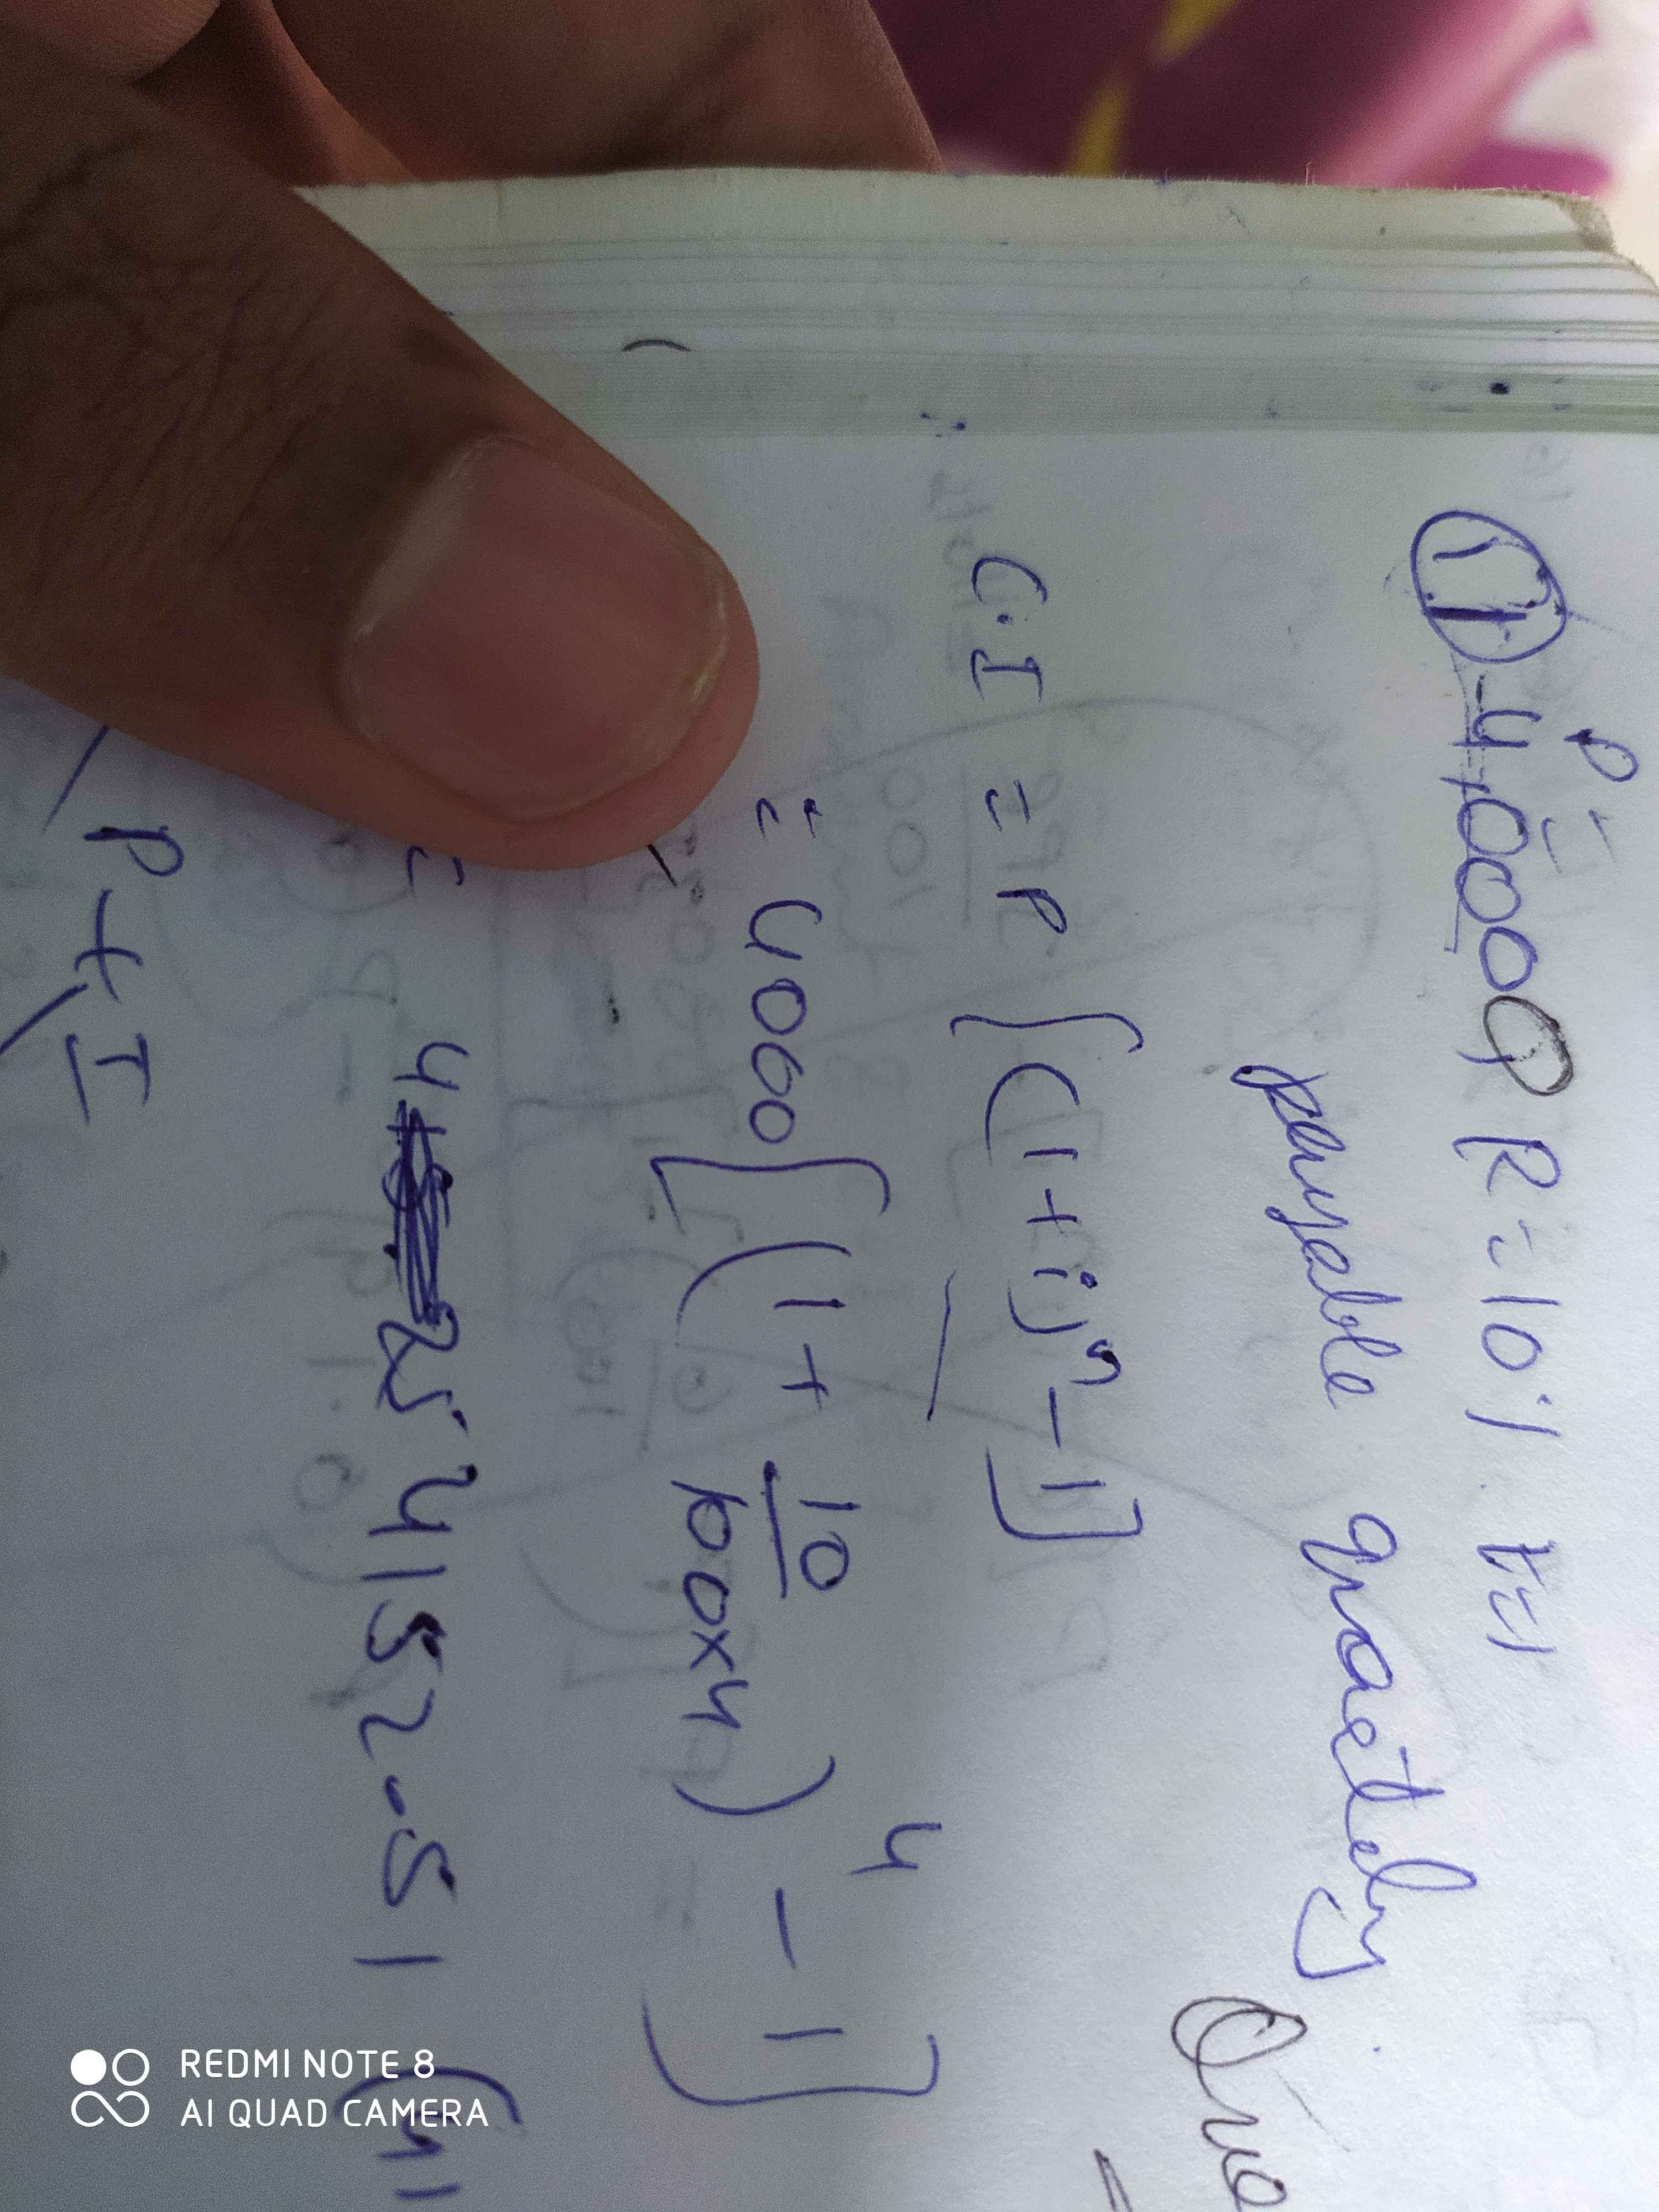 P =
① 40000 R = 10% t=1
payable quaetely
C.I = P [(1+i)ⁿ - 1]
= 4000 [(1 + 10/100x4)⁴ - 1]
= 4152.51
P + I
REDMI NOTE 8
AI QUAD CAMERA